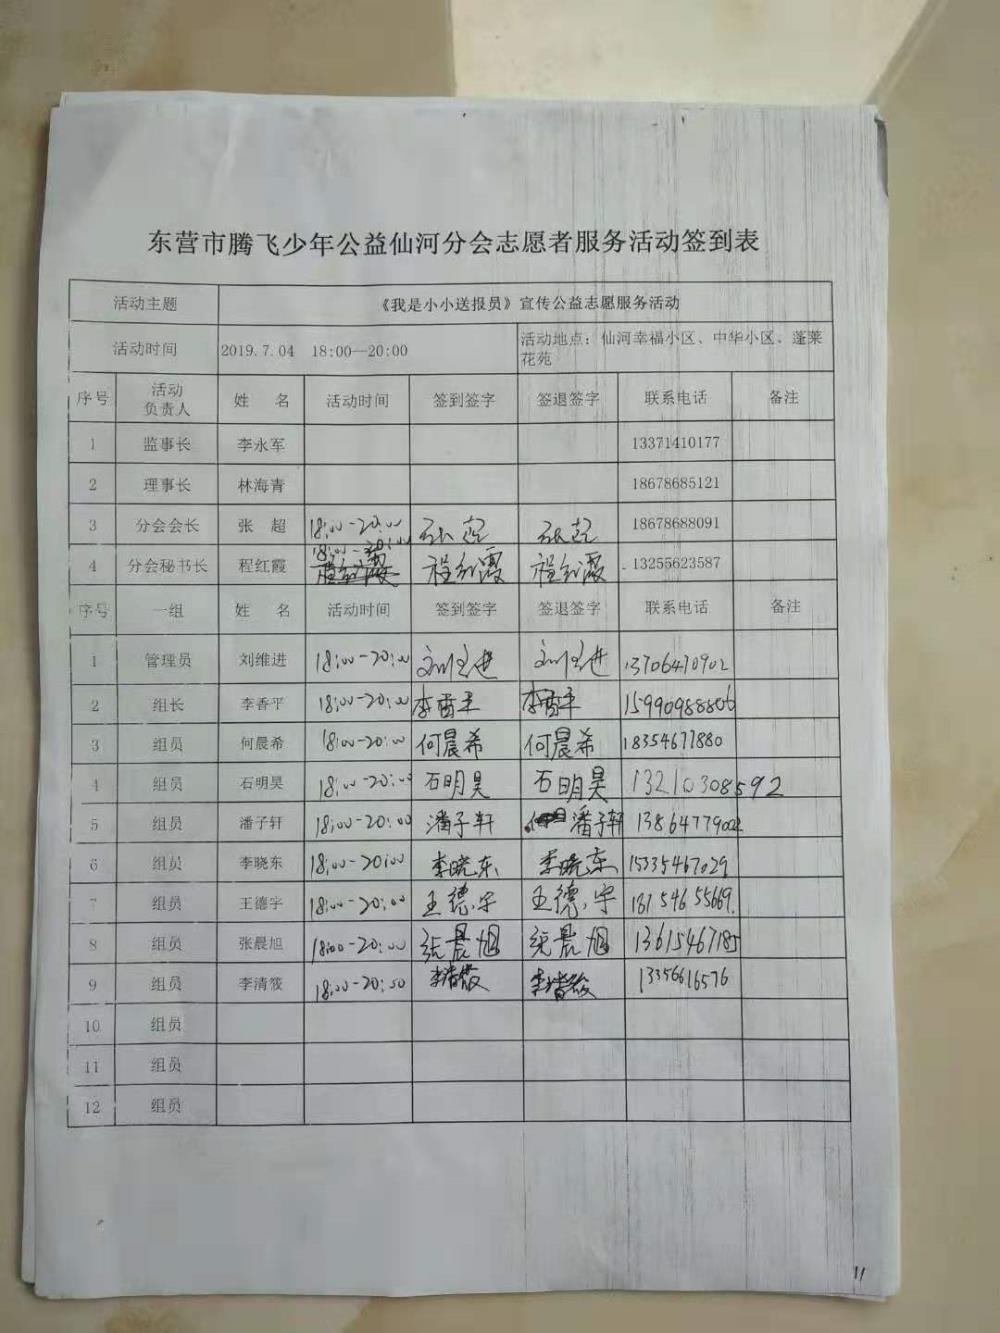 东营市腾飞少年公益仙河分会志愿者服务活动签到表
活动主题 《我是小小送报员》宣传公益志愿服务活动
活动时间 2019.7.04 18:00—20:00 活动地点：仙河幸福小区、中华小区、蓬莱
花苑
序号 活动 姓 名 活动时间 签到签字 签退签字 联系电话 备注
负责人
1 监事长 李永军 13371410177
2 理事长 林海青 18678685121
3 分会会长 张 超 18:00-20:00 张超 张超 18678688091
4 分会秘书长 程红霞 18:00-20:00 程红霞 程红霞 13255623587
序号 一组 姓 名 活动时间 签到签字 签退签字 联系电话 备注
1 管理员 刘维进 18:00-20:00 刘维进 刘维进 13706470902
2 组长 李香平 18:00-20:00 李香平 李香平 15990988806
3 组员 何晨希 18:00-20:00 何晨希 何晨希 18354677880
4 组员 石明昊 18:00-20:00 石明昊 石明昊 13210308592
5 组员 潘子轩 18:00-20:00 潘子轩 潘子轩 13864779002
6 组员 李晓东 18:00-20:00 李晓东 李晓东 15335467029
7 组员 王德宇 18:00-20:00 王德宇 王德宇 18154655669
8 组员 张晨旭 18:00-20:00 张晨旭 张晨旭 13615467185
9 组员 李清筱 18:00-20:00 李清筱 李清筱 13356616576
10 组员
11 组员
12 组员
11